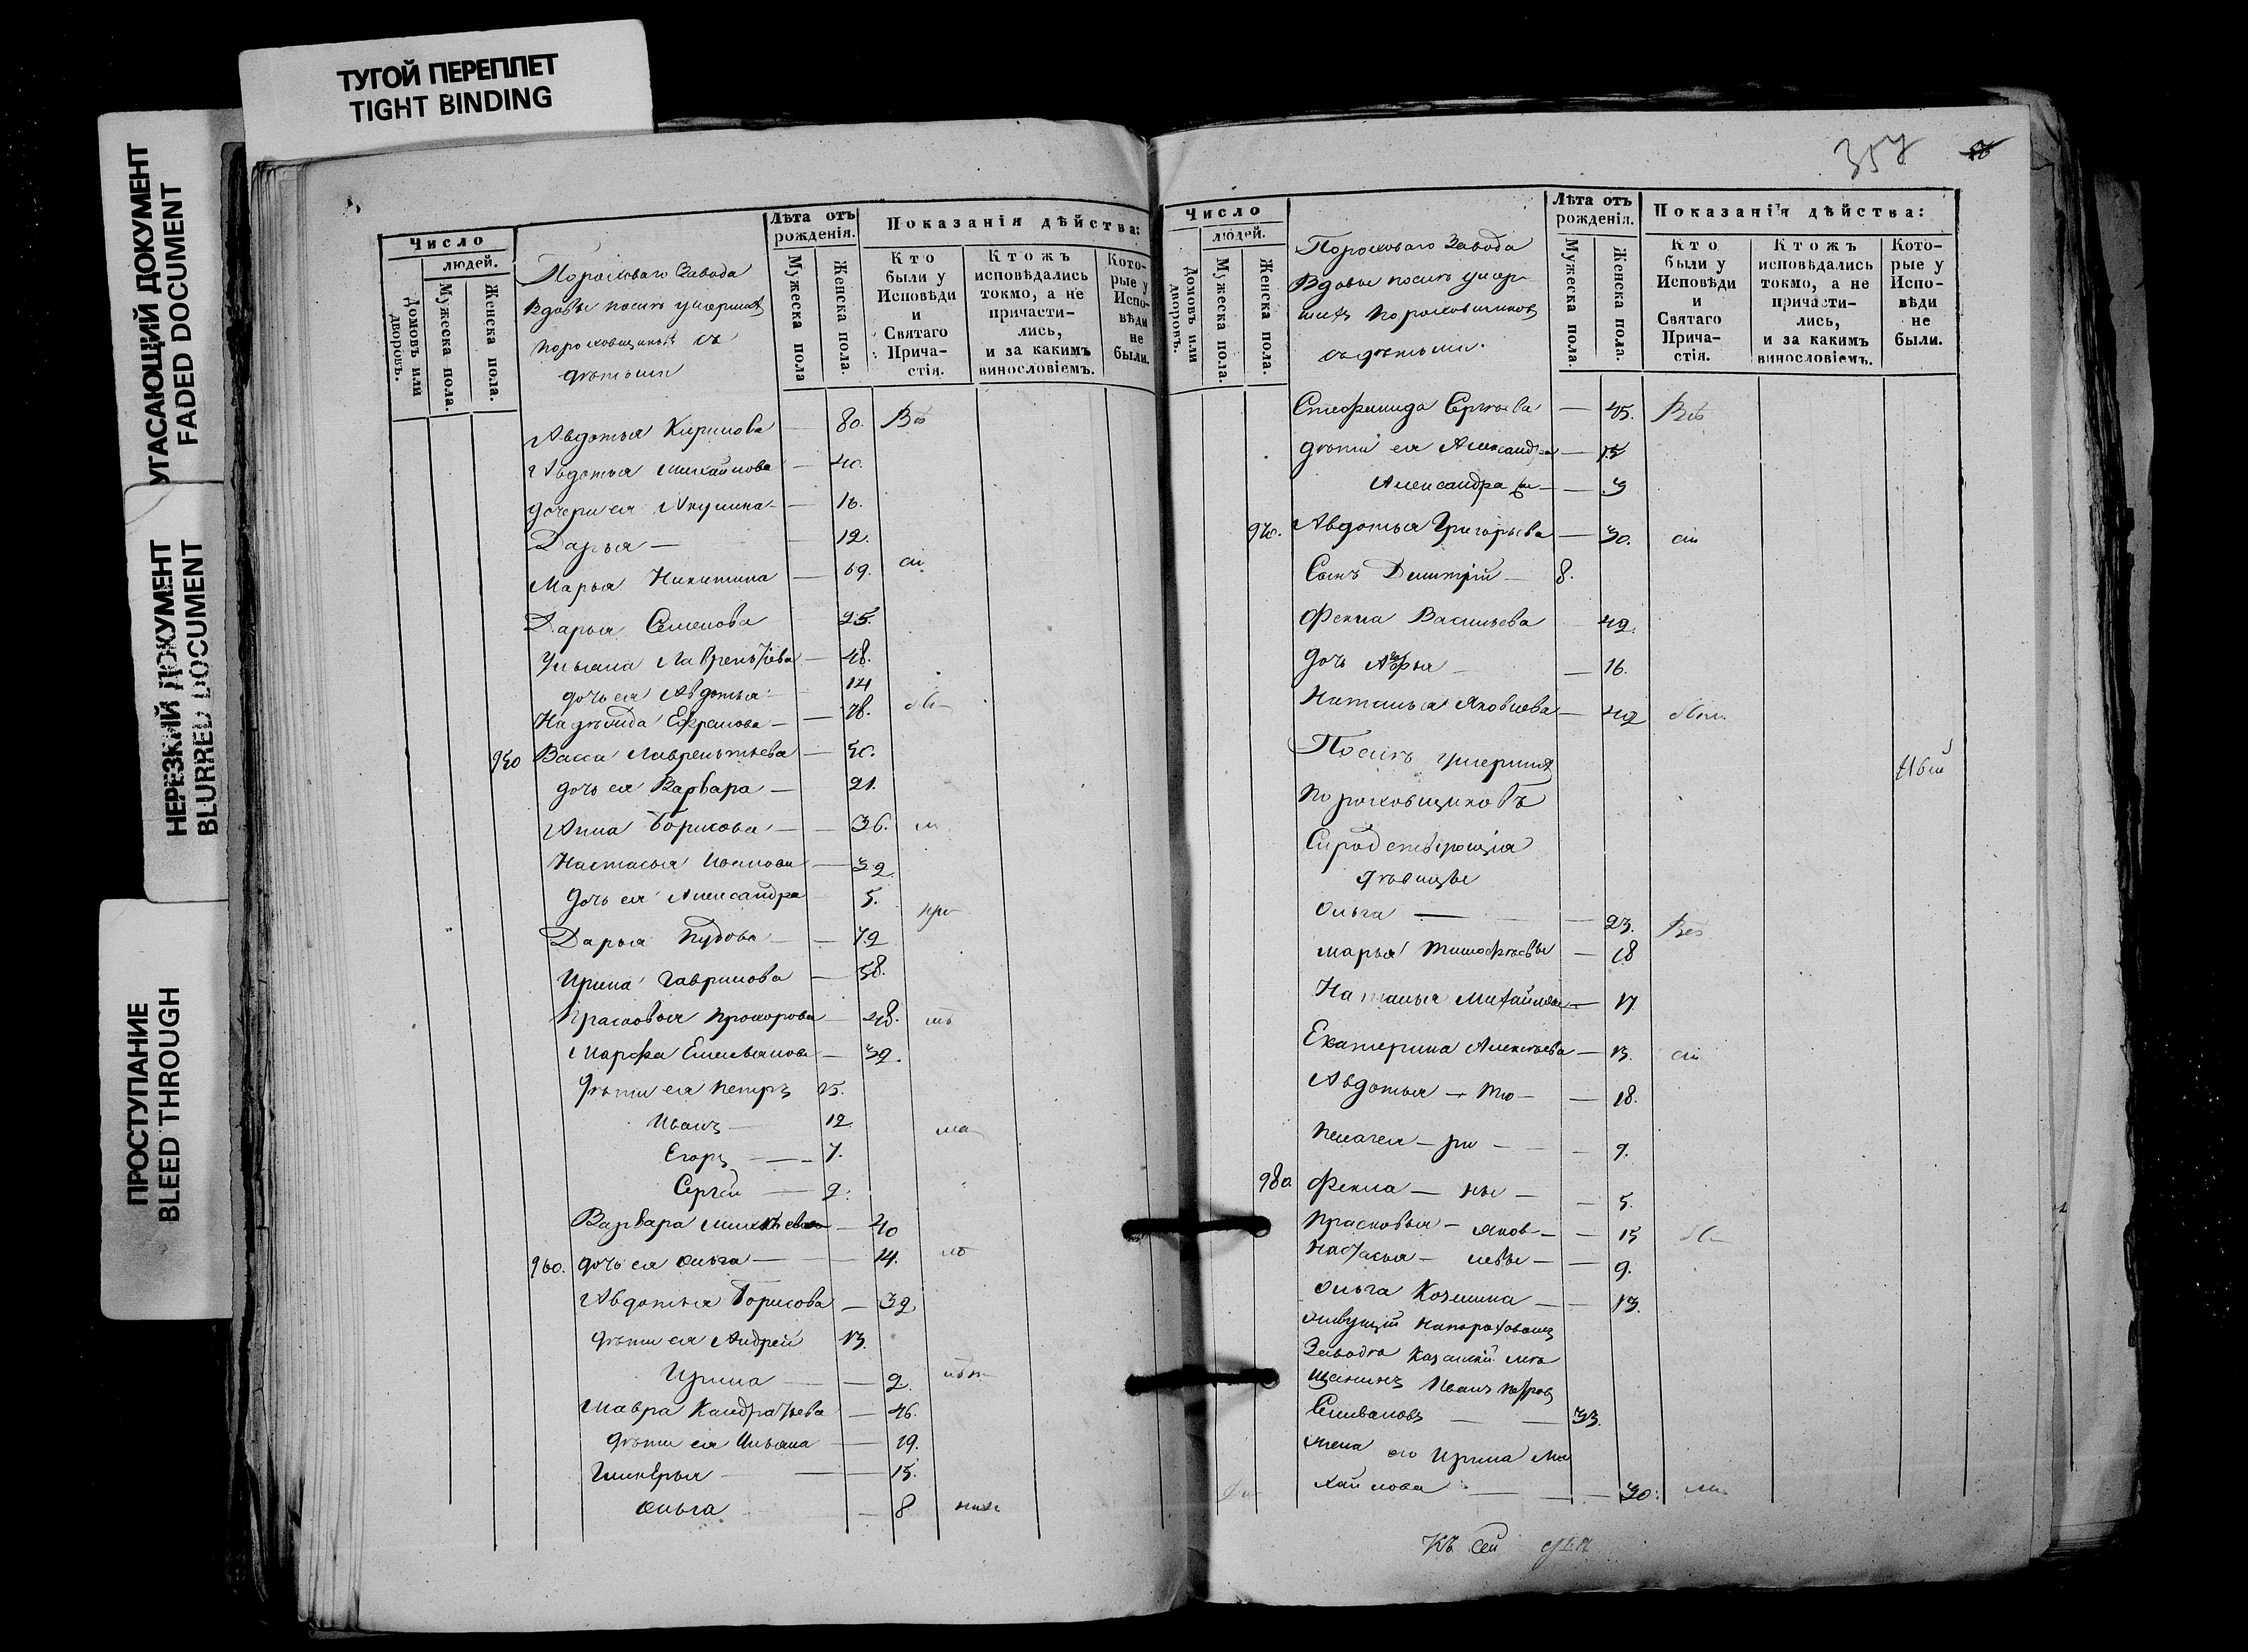 ТУГОЙ ПЕРЕПЛЕТ
TIGHT BINDING
УГАСАЮЩИЙ ДОКУМЕНТ
FADED DOCUMENT
НЕРЕЗКИЙ ДОКУМЕНТ
BLURRED DOCUMENT
ПРОСТУПАНИЕ
BLEED THROUGH
Число
людей.
Домовъ или дворовъ.
Мужеска пола.
Женска пола.
Пороховаго Завода
Вдовы послѣ умершихъ
пороховщиковъ съ
дѣтьми
Лѣта отъ рожденія.
Мужеска пола
Женска пола.
Показанія дѣйства:
Кто были у Исповѣди и Святаго Прича-стія.
Ктожъ исповѣдались токмо, а не причасти-лись, и за какимъ винословіемъ.
Кото-рые у Испо-вѣди не были.
Авдотья Кирилова — 80. Всѣ
Авдотья Михайлова — 40.
дочери ея Акулина — 16.
Дарья — 12.
Марья Никитина — 69. сіи
Дарья Семенова 25.
Ульяна Лаврентіева — 48.
дочь ея Авдотья 14
Надѣжда Ефрамова — 78.
950 Васса Лаврентьева — 50.
дочь ея Варвара — 21.
Анна Борисова — 36.
Настасья Иванова — 32.
дочь ея Александра 5.
Дарья — 72
Ирина Гаврилова — 58.
Прасковья Прохорова — 48.
Марфа Емельянова — 32.
дѣти ея Петръ 15.
Иванъ — 12
Егоръ — 7.
Сергѣй — 2.
Варвара — 40
960. дочь ея Ольга — 14.
Авдотья Борисова — 32.
дѣти ея Андрей 13.
Ирина — 2.
Мавра Кандратьева — 46.
дѣти ея Ульяна — 19.
Гликерья — 15.
Ольга — 8
357
Число
людей.
Домовъ или дворовъ.
Мужеска пола.
Женска пола.
Пороховаго Завода
Вдовы послѣ умер-
шихъ пороховщиковъ
съ дѣтьми.
Лѣта отъ рожденія.
Мужеска пола.
Женска пола.
Показанія дѣйства:
Кто были у Исповѣди и Святаго Прича-стія.
Ктожъ исповѣдались токмо, а не причасти-лись, и за какимъ винословіемъ.
Кото-рые у Испо-вѣди не были.
Стефанида Сергѣева — 45. Всѣ
дѣти ея Александра — 15
Александра — 3
970. Авдотья Григорьева — 30. сіи
Сынъ Димитрій — 8.
Фекла Васильева 42.
дочь — 16.
Наталья Яковлева — 42
Послѣ умершихъ
пороховщиковъ
дѣвицы
Ольга — 23. Всѣ
Марья Тимофѣевы — 18
Наталья Михайлова — 17.
Екатерина Алексѣева — 13. сіи
Авдотья — Тю — 18.
Пелагея — ри — 9.
980. Фекла — ны — 5.
Прасковья — Яков — 15
Настасья — левы — 9.
Ольга Козмина — 13.
живущій на пороховомъ
Заводѣ Казанскій мѣ
щанинъ Иванъ Петровъ
Селивановъ — 33.
жена его Ирина Ми
хайлова — 30.
Къ сей